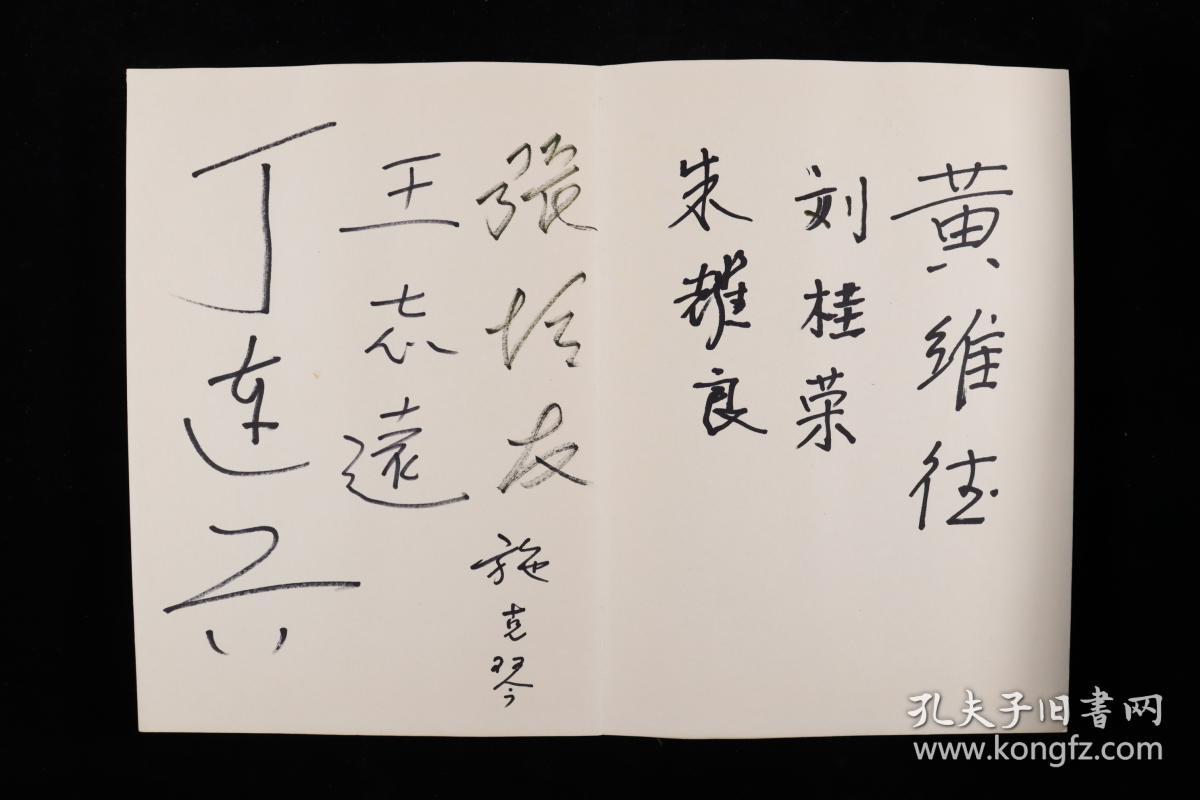 黄维往
刘桂荣
朱耀良
張培友
施克琴
王志遠
丁连兵
孔夫子旧書网
www.kongfz.com